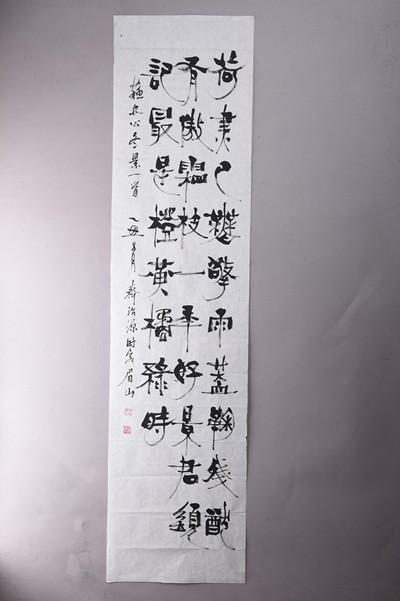 荷盡已無擎雨蓋鞠殘猶
有傲霜枝一年好景君須
記最是橙黃橘綠時
蘇長公冬景一首 月 治源時客眉山